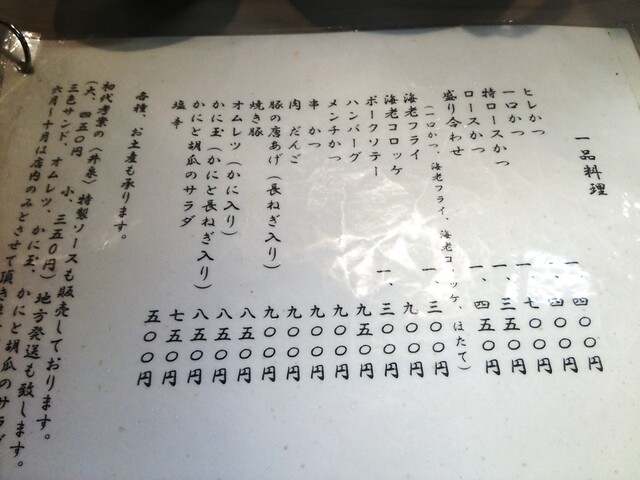 一品料理
ヒレかつ 一、四〇〇円
一口かつ 一、四〇〇円
特ロースかつ 一、七〇〇円
ロースかつ 一、三五〇円
盛り合わせ 一、四五〇円
(一口かつ、海老フライ、海老コロッケ、ほたて)
海老フライ 一、三〇〇円
海老コロッケ 九〇〇円
ポークソテー 一、三〇〇円
ハンバーグ 九五〇円
メンチかつ 九〇〇円
串かつ 九〇〇円
肉だんご 九〇〇円
豚の唐あげ(長ねぎ入り) 九〇〇円
焼き豚 八五〇円
オムレツ(かに入り) 八五〇円
かに玉(かにと長ねぎ入り) 八五〇円
かにと胡瓜のサラダ 七五〇円
塩辛 五〇〇円
各種、お土産も承ります。
初代考案の(井泉)特製ソースも販売しております。
(大、四五〇円 小、三五〇円)地方発送も致します。
三色サンド、オムレツ、かに玉、かにと胡瓜のサラダ
六月〜十月は店内のみとさせて頂きます